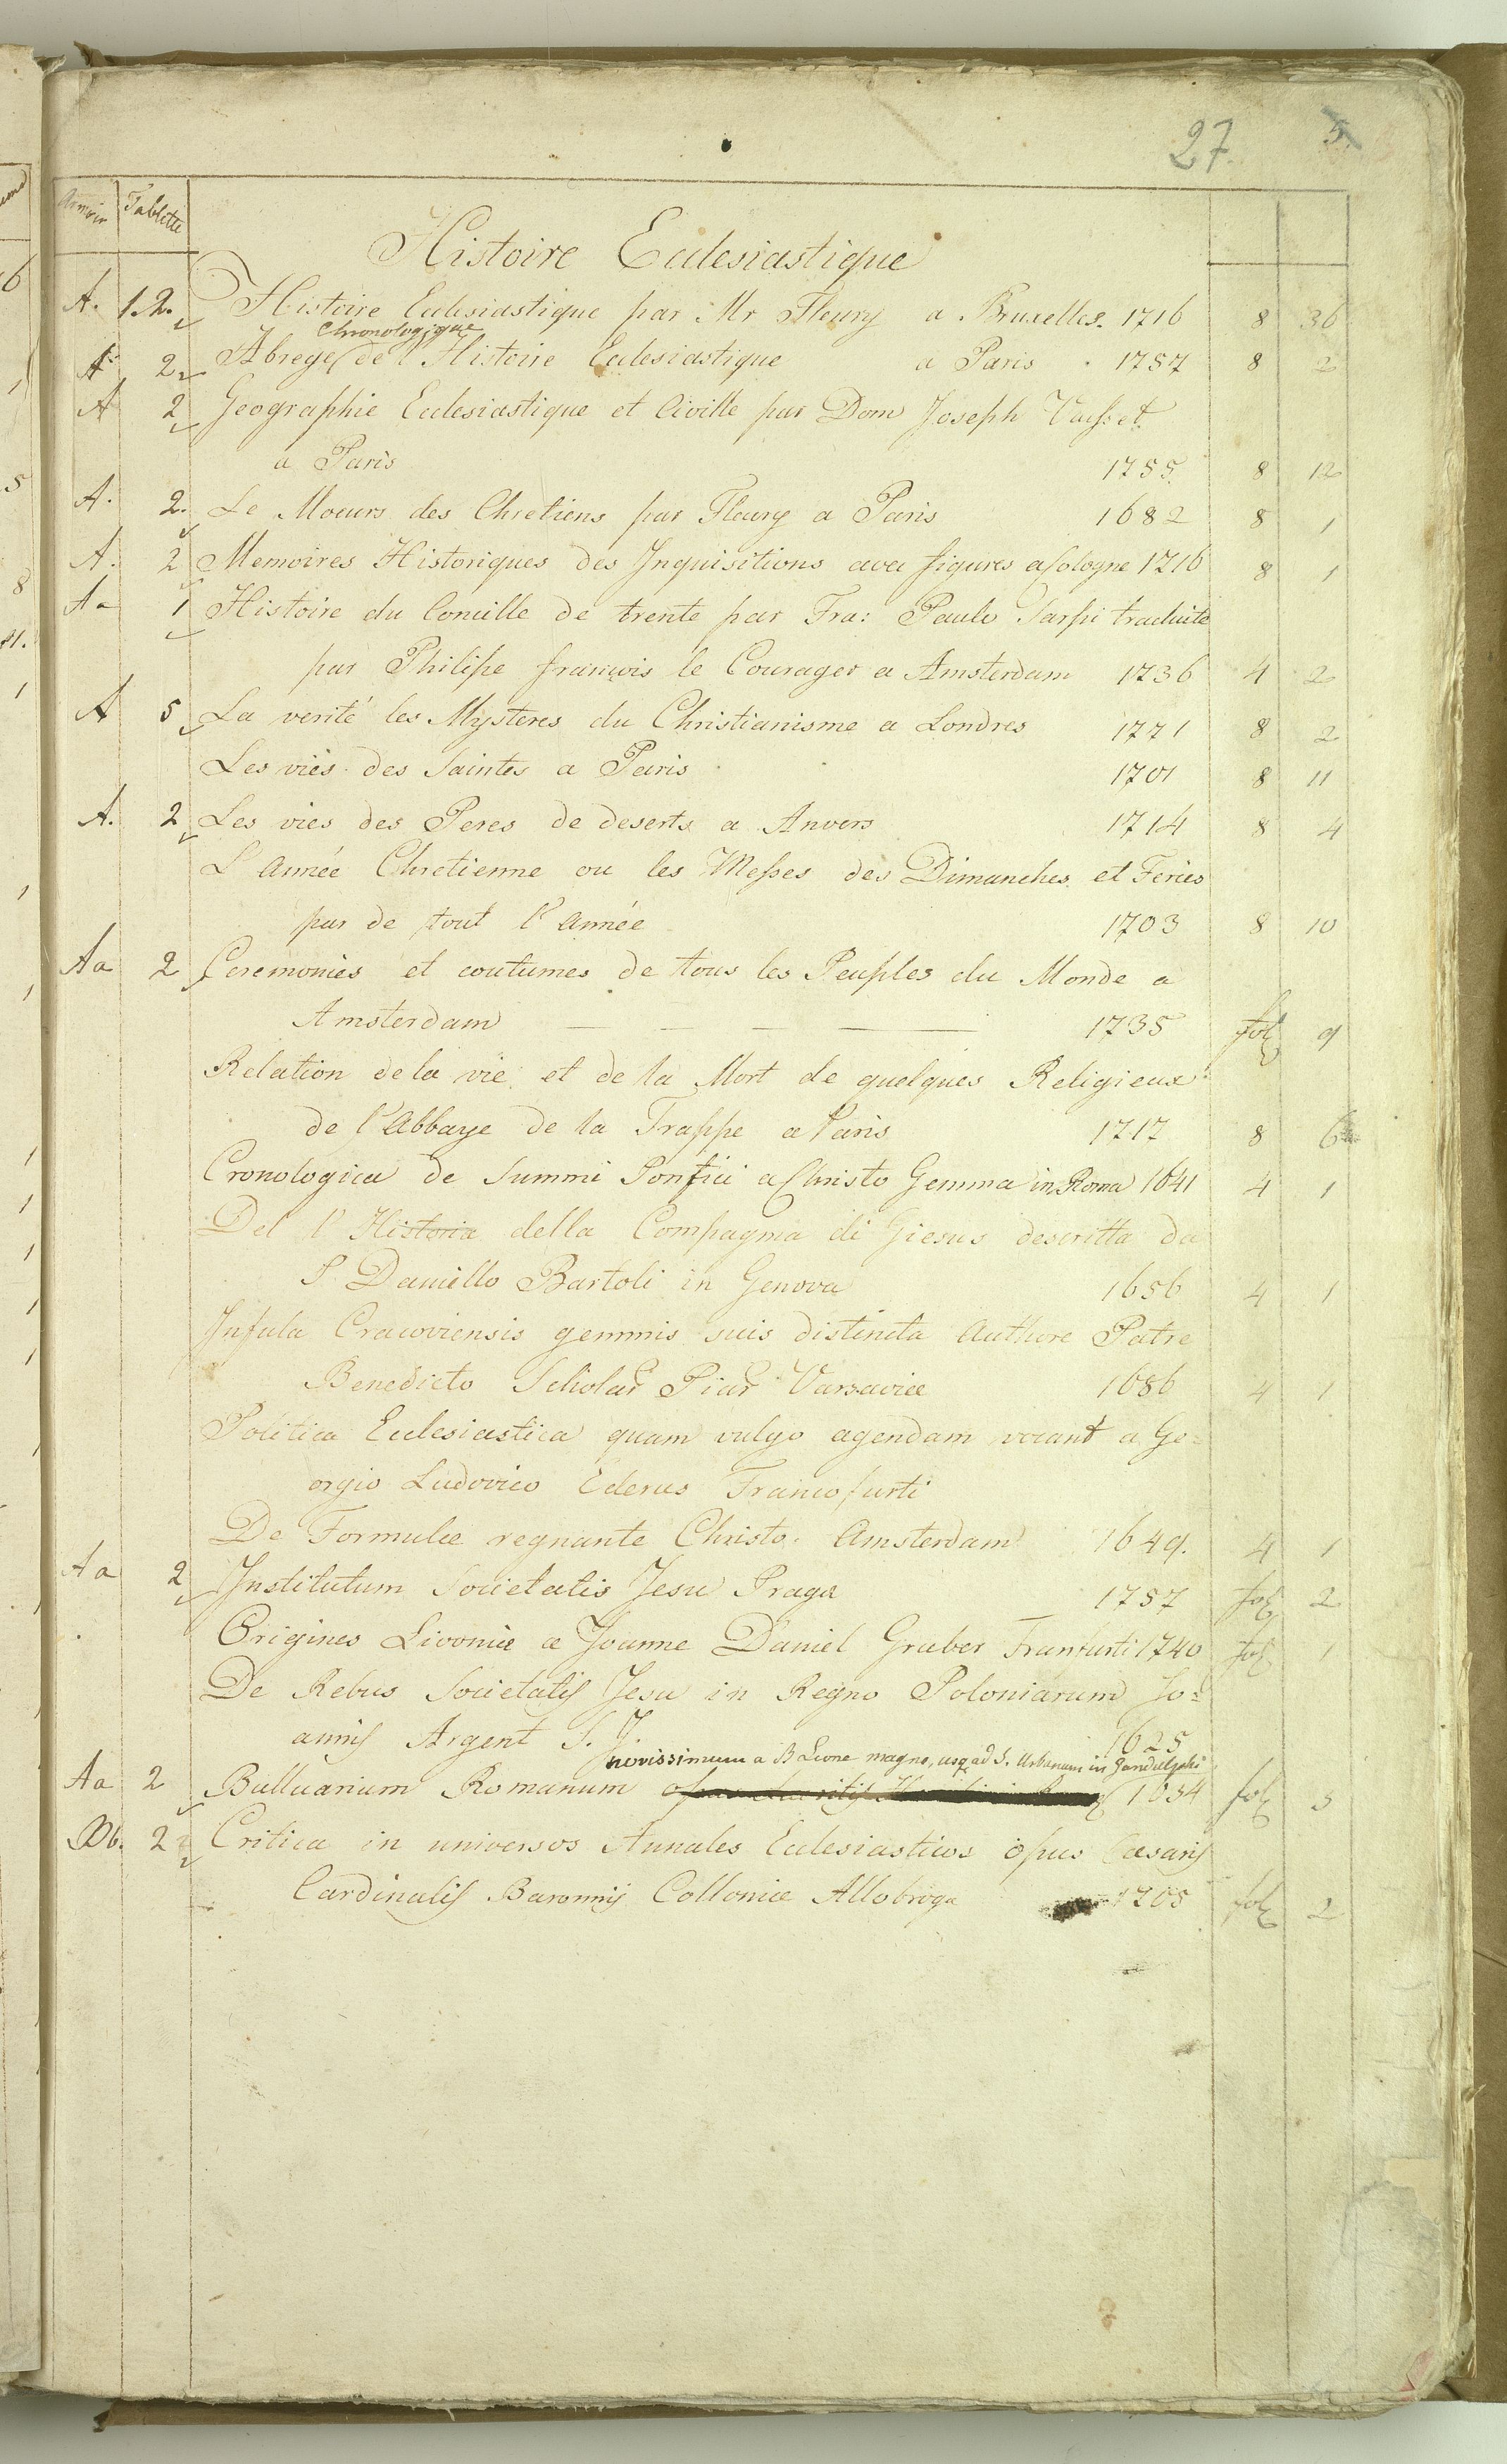 27 5
Armoir Tablette
Histoire Eclesiastique
A. 1.2. Histoire Eclesiastique par Mr Fleury a Bruxelles. 1716 8 36
Chronologique
A 2 Abregé de l'Histoire Eclesiastique a Paris 1757 8 2
A 2 Geographie Eclesiastique et Civille par Dom Joseph Vaisset
a Paris 1755. 8 12
A. 2. Le Moeurs des Chretiens par Fleury a Paris 1682 8 1
A. 2 Memoires Historiques des Inquisitions avec figures a Cologne 1716 8 1
Aa 1 Histoire du Concille de trente par Fra: Paulo Sarpi traduite
par Philipe francois le Courager a Amsterdam 1736 4 2
A 5 La verité les Mysteres du Christianisme a Londres 1771 8 2
Les viés des Saintes a Paris 1701 8 11
A. 2 Les vies des Peres de deserts a Anvers 1714 8 4
L'Année Chretienne ou les Messes des Dimanches et Feries
par de tout l'Année 1703 8 10
Aa 2 Ceremonies et coutumes de tous les Peuples du Monde a
Amsterdam 1735 fol 9
Relation de la vie et de la Mort de quelques Religieux
de l'Abbaye de la Trappe a Paris 1717 8 6
Cronologica de Summi Pontfici a Christo Gemma in Roma 1641 4 1
Del l'Historia della Compagnia di Giesus descritta da
P Daniello Bartoli in Genova 1656 4 1
Infula Cracoviensis gemmis suis distincta Authore Patre
Benedicto Scholar Piar Varsaviæ 1686 4 1
Politica Eclesiastica quam vulgo agendam vocant a Ge=
orgio Ludovico Ederus Francofurti
De Formulæ regnante Christo. Amsterdam 1649. 4 1
Aa 2 Institutum Societatis Jesu Praga 1757 fol 2
Origines Livoniæ a Joanne Daniel Gruber Franfurti 1740 fol 1
De Rebus Societatis Jesu in Regno Poloniarum Jo=
annis Argent S. J. 1625
novissimum a B Leone magno, usq ad S. Urbanum in
Aa 2 Bulluarium Romanum 1634 fol 5
Bb. 2 Critica in universos Annales Eclesiasticos opus Cæsaris
Cardinalis Baronnij Colloniæ Allobroga 1705 fol 2